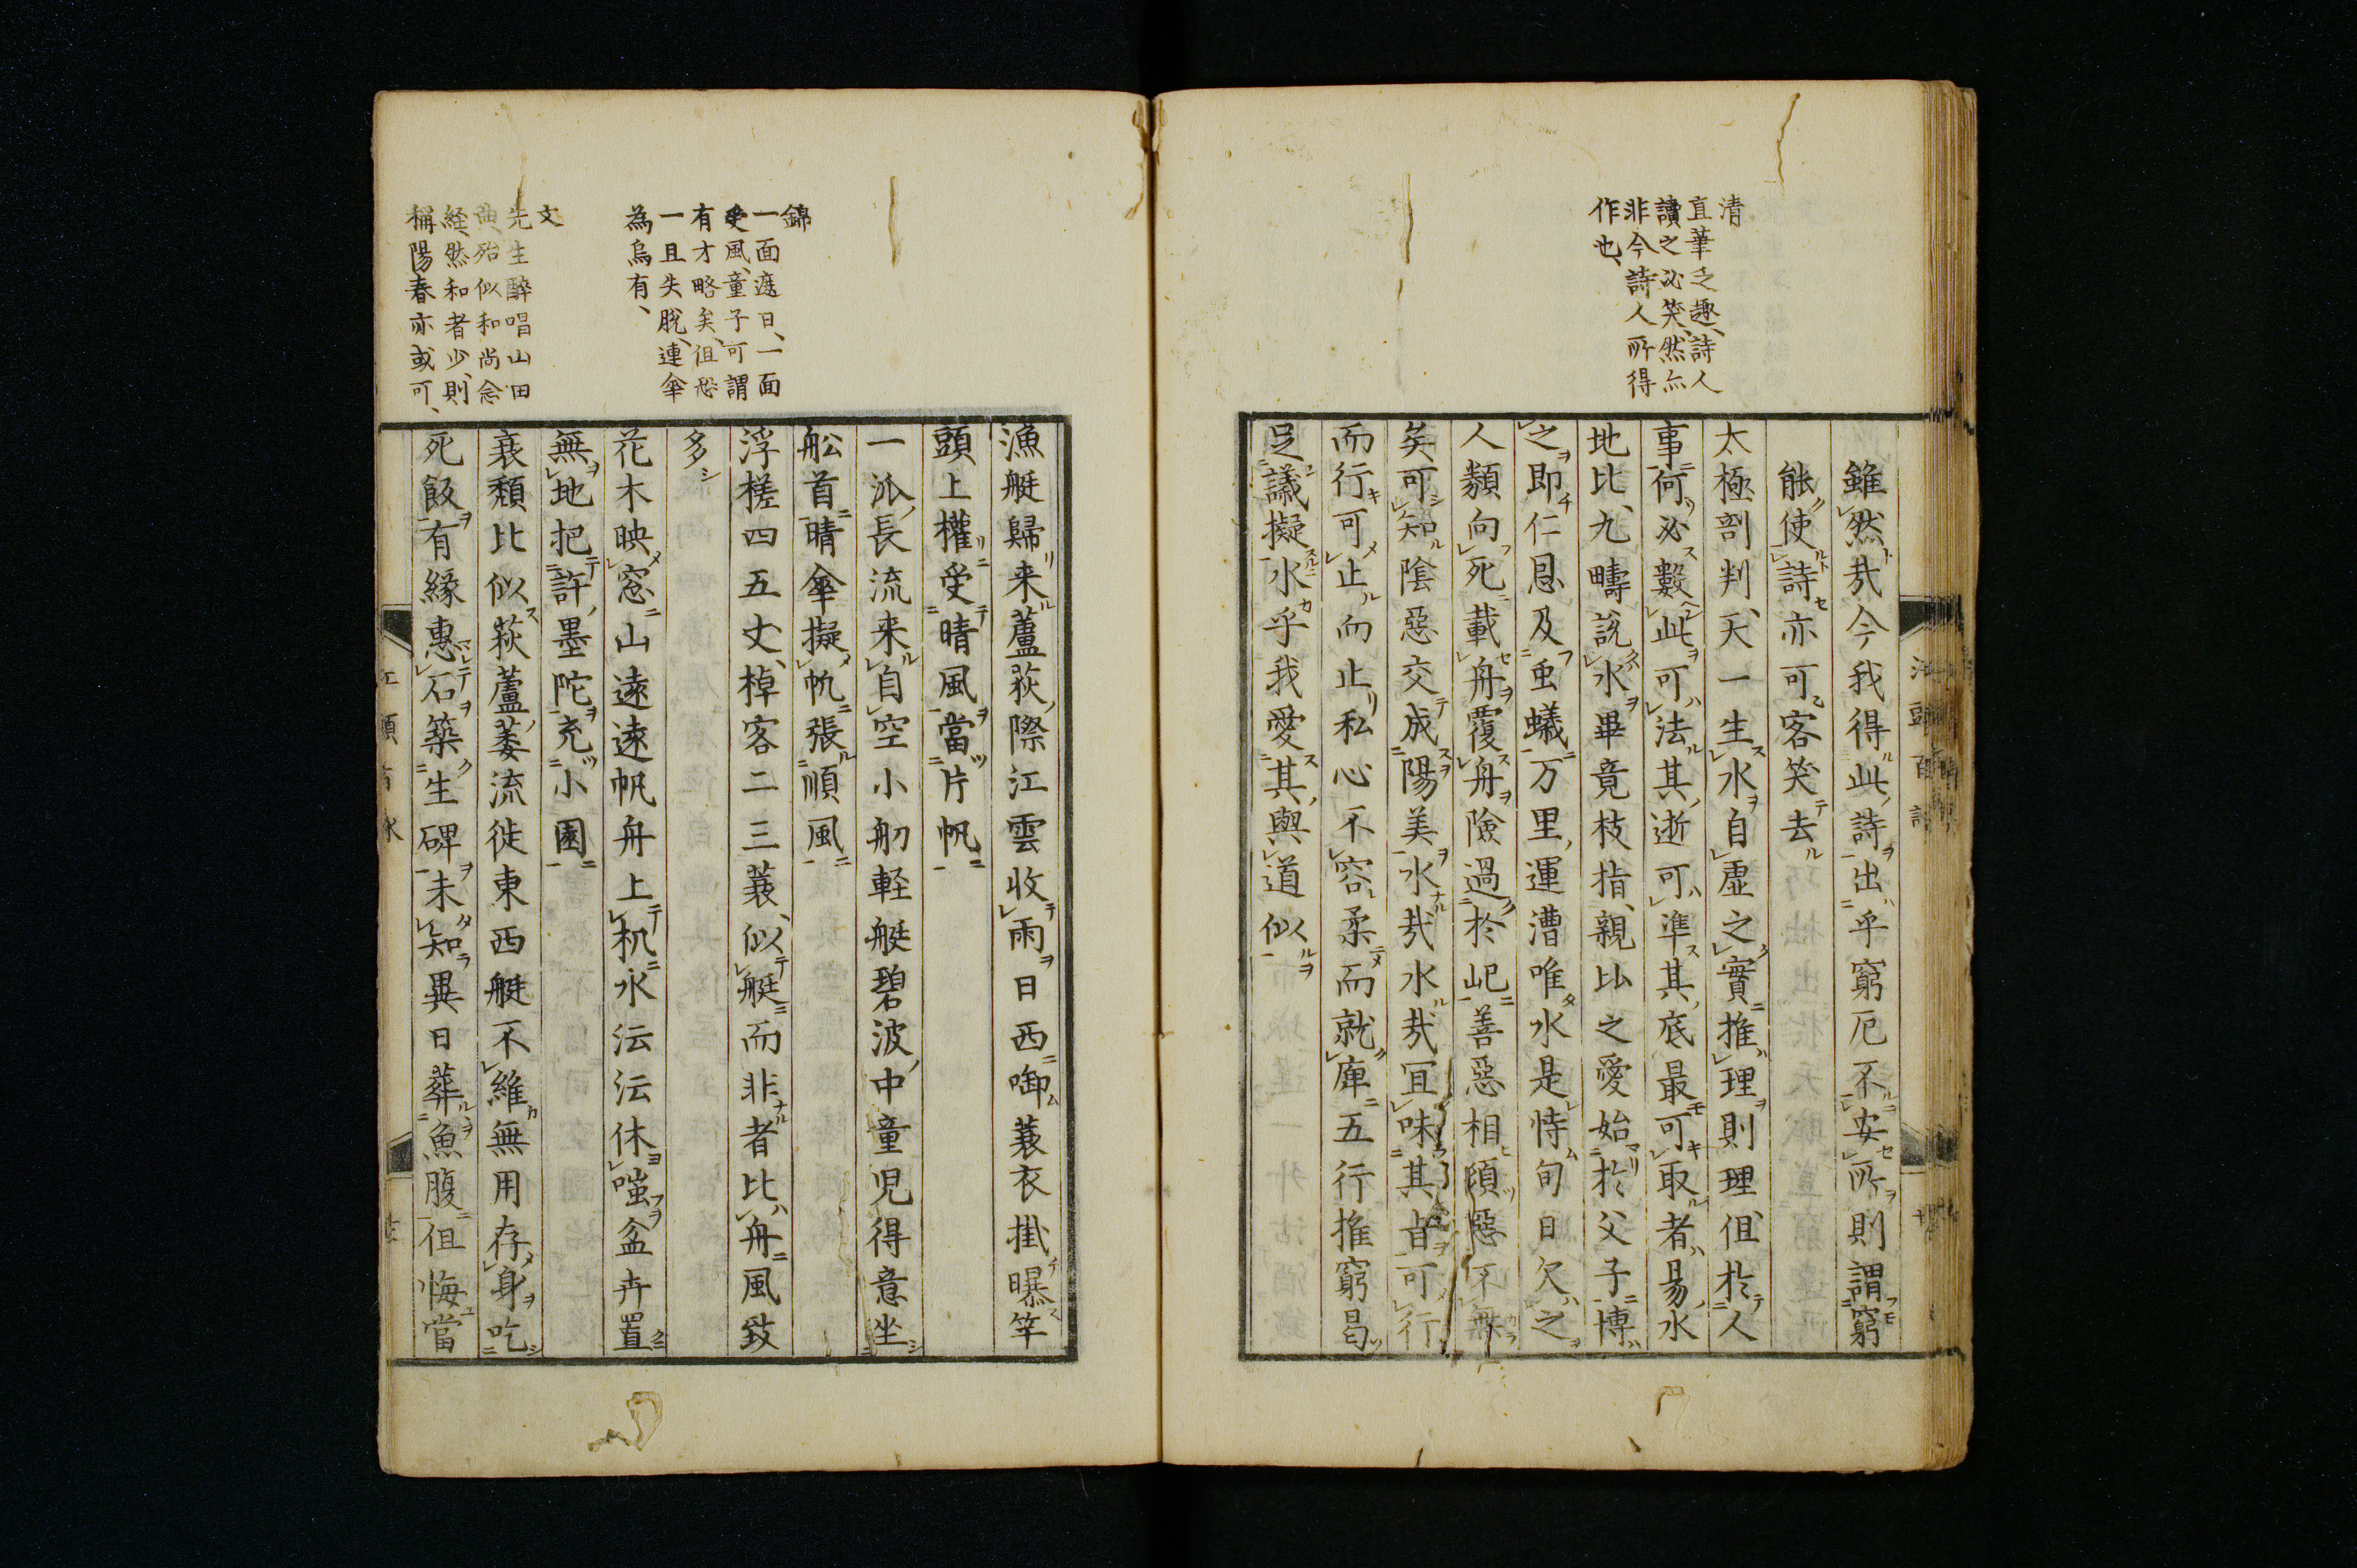 清
直筆之趣、詩人
讀之必笑、然亦
非今詩人所得
作也、
雖然哉今我得此詩出乎窮厄不安所則謂窮
能使詩亦可客笑去
太極剖判、天一生水自虛之實推理則理、但於人
事何必數此可法其逝可準其底最可取者易水
地比、九疇說水畢竟枝指、親比之愛始於父子博
之即仁恩及虫蟻万里運漕唯水是恃旬日欠之
人類向死載舟覆舟險過於屺善惡相須惡不無
矣、可知陰惡交成陽美水哉水哉冝味其旨可行
而行可止而止私心不容柔而就庳五行推窮曷
足議擬水乎我愛其與道似
漁艇歸来蘆荻際江雲收雨日西啣蓑衣掛曝竿
頭上權受晴風當片帆
一派長流来自空小舠軽艇碧波中童児得意坐
舩首晴傘擬帆張順風
浮槎四五丈、棹客二三蓑、似艇而非者比舟風致
多
花木映窓山遠遠帆舟上机水沄沄休嗤盆卉置
無地把許墨陀充小園
衰頽比似荻蘆萎流徙東西艇不維無用存身吃
死飯有緣惠石築生碑未知異日葬魚腹但悔當
錦
一面遮日、一面
受風、童子可謂
有才略矣、但恐
一旦失脫、連傘
為烏有、
文
先生醉唱山田
曲、殆似和尚念
経、然和者少、則
稱陽春亦或可、